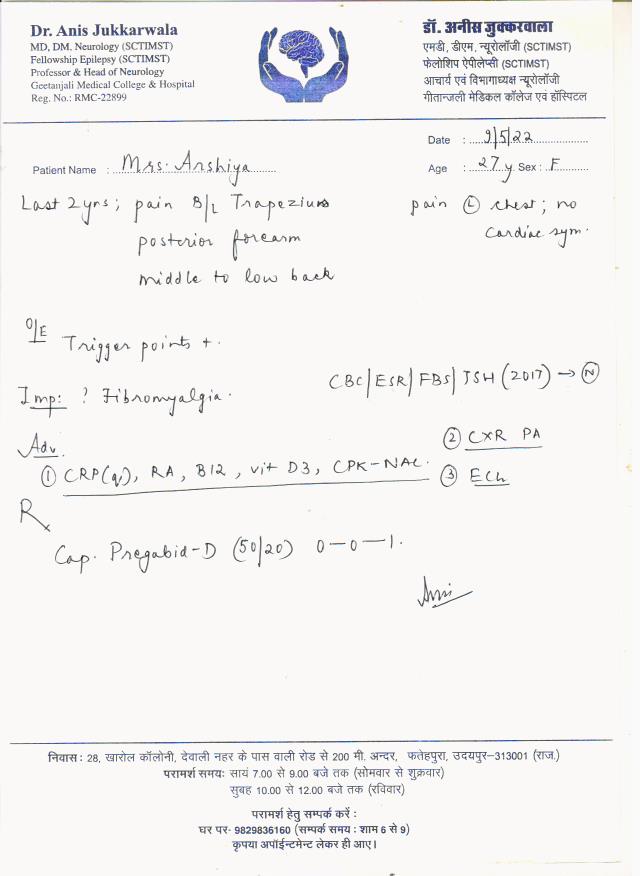 Dr. Anis Jukkarwala
MD, DM. Neurology (SCTIMST)
Fellowship Epilepsy (SCTIMST)
Professor & Head of Neurology
Geetanjali Medical College & Hospital
Reg. No.: RMC-22899
डॉ. अनीस जुक्करवाला
एमडी, डीएम. न्यूरोलॉजी (SCTIMST)
फेलोशिप ऐपीलेप्सी (SCTIMST)
आचार्य एवं विभागाध्यक्ष न्यूरोलॉजी
गीतान्जली मेडिकल कॉलेज एवं हॉस्पिटल
Date : 9/5/22
Patient Name : Mrs. Anshiya
Age : 27 y. Sex : F
Last 2 yrs; pain B/L Trapezius
posterior forearm
middle to low back
pain (L) chest; no
cardiac sym.
O/E Trigger points +.
CBC/ESR/FBS/TSH (2017) → (N)
Imp: ? Fibromyalgia.
Adv.
(1) CRP(q), RA, B12, vit D3, CPK-NAC.
(2) CXR PA
(3) ECh
Rx
Cap. Pregabid-D (50/20) 0—0—1.
Anis
निवास: 28, खारोल कॉलोनी, देवाली नहर के पास वाली रोड से 200 मी. अन्दर, फतेहपुरा, उदयपुर-313001 (राज.)
परामर्श समय: सायं 7.00 से 9.00 बजे तक (सोमवार से शुक्रवार)
सुबह 10.00 से 12.00 बजे तक (रविवार)
परामर्श हेतु सम्पर्क करें :
घर पर- 9829836160 (सम्पर्क समय : शाम 6 से 9)
कृपया अपॉईन्टमेन्ट लेकर ही आए।